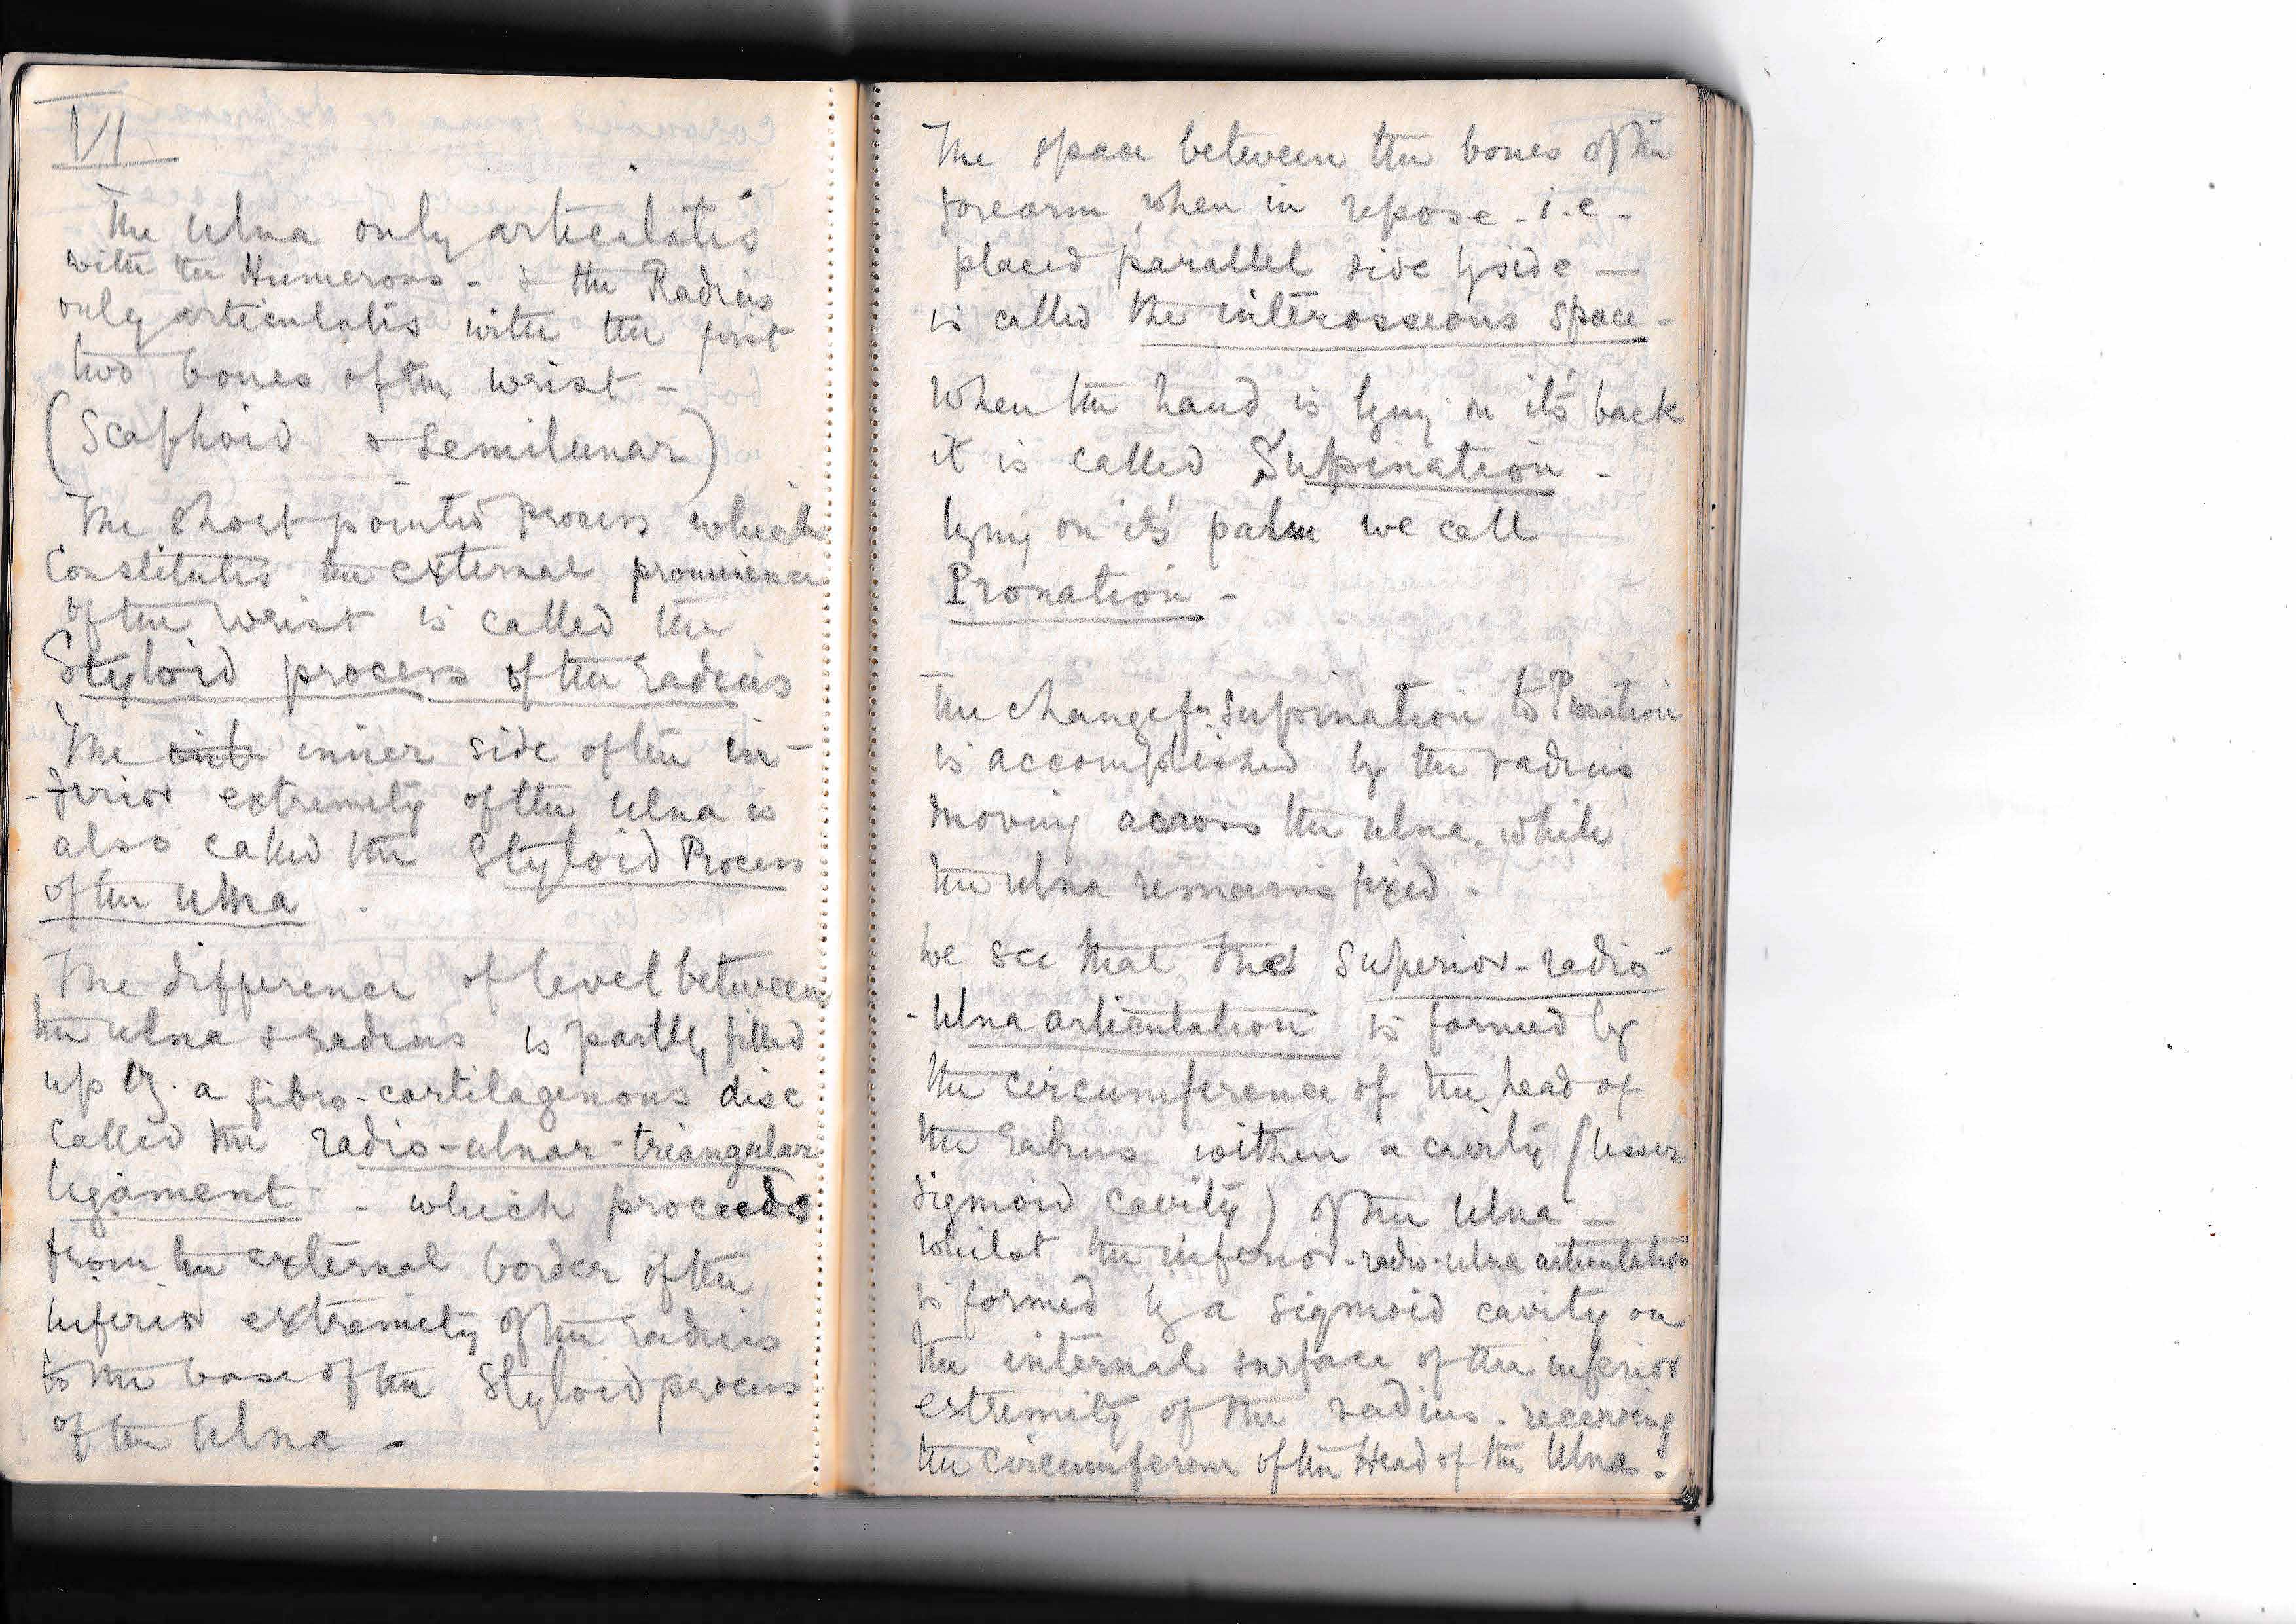 VI
The Ulna only articulates
with the Humerous - & the Radius
only articulates with the first
two bones of the wrist -
(Scaphoid & Semilunar)
The short pointed process which
constitutes the external prominence
of the wrist is called the
Styloid process of the radius
The inner side of the in-
-ferior extremity of the Ulna is
also called the Styloid Process
of the Ulna .
The difference of level between
the Ulna & radius is partly filled
up by a fibro-cartilagenous disc
called the radio-ulnar-triangular
ligament - which proceeds
from the external border of the
inferior extremity of the radius
to the base of the Styloid process
of the Ulna -
The space between the bones of the
forearm, when in repose - i.e -
placed parallel side by side -
is called the interosseous space -
When the hand is lying on it's back
it is called Supination -
lying on it's palm we call
Pronation -
The change fr. Supination to Pronation
is accomplished by the radius
moving across the ulna, while
the ulna remains fixed -
We see that the Superior-radio-
-Ulna articulation is formed by
the circumference of the head of
the Radius within a cavity (lesser
sigmoid cavity) of the Ulna -
whilst the inferior-radio-ulna articulation
is formed by a sigmoid cavity on
the internal surface of the inferior
extremity of the radius - receiving
the circumference of the Head of the Ulna.